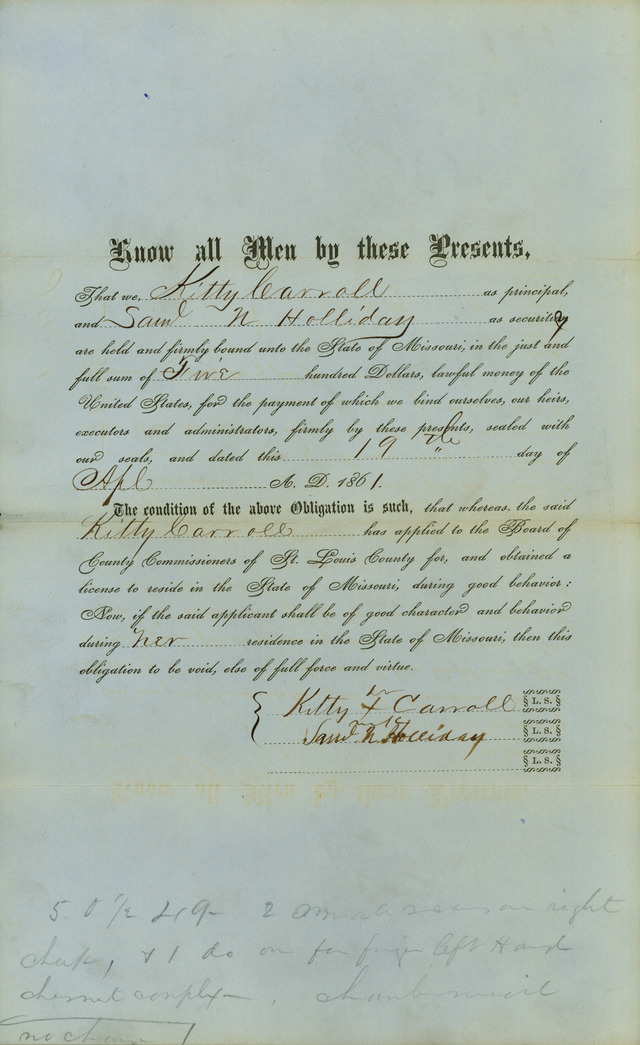 Know all Men by these Presents,
That we, Kitty Carroll as principal,
and Saml N Holliday as security
are held and firmly bound unto the State of Missouri, in the just and
full sum of Five hundred Dollars, lawful money of the
United States, for the payment of which we bind ourselves, our heirs,
executors and administrators, firmly by these presents, sealed with
our seals, and dated this 19th day of
Apl A. D. 1861.
The condition of the above Obligation is such, that whereas, the said
Kitty Carroll has applied to the Board of
County Commissioners of St. Louis County for, and obtained a
license to reside in the State of Missouri, during good behavior:
Now, if the said applicant shall be of good character and behavior
during her residence in the State of Missouri, then this
obligation to be void, else of full force and virtue.
Kitty X Carroll L. S.
Saml N Holliday L. S.
L. S.
5.0 1/2 49- 2 small scars on right
cheek, & 1 do on fore finger left Hand
chesnut complex-, chambermaid
no charge